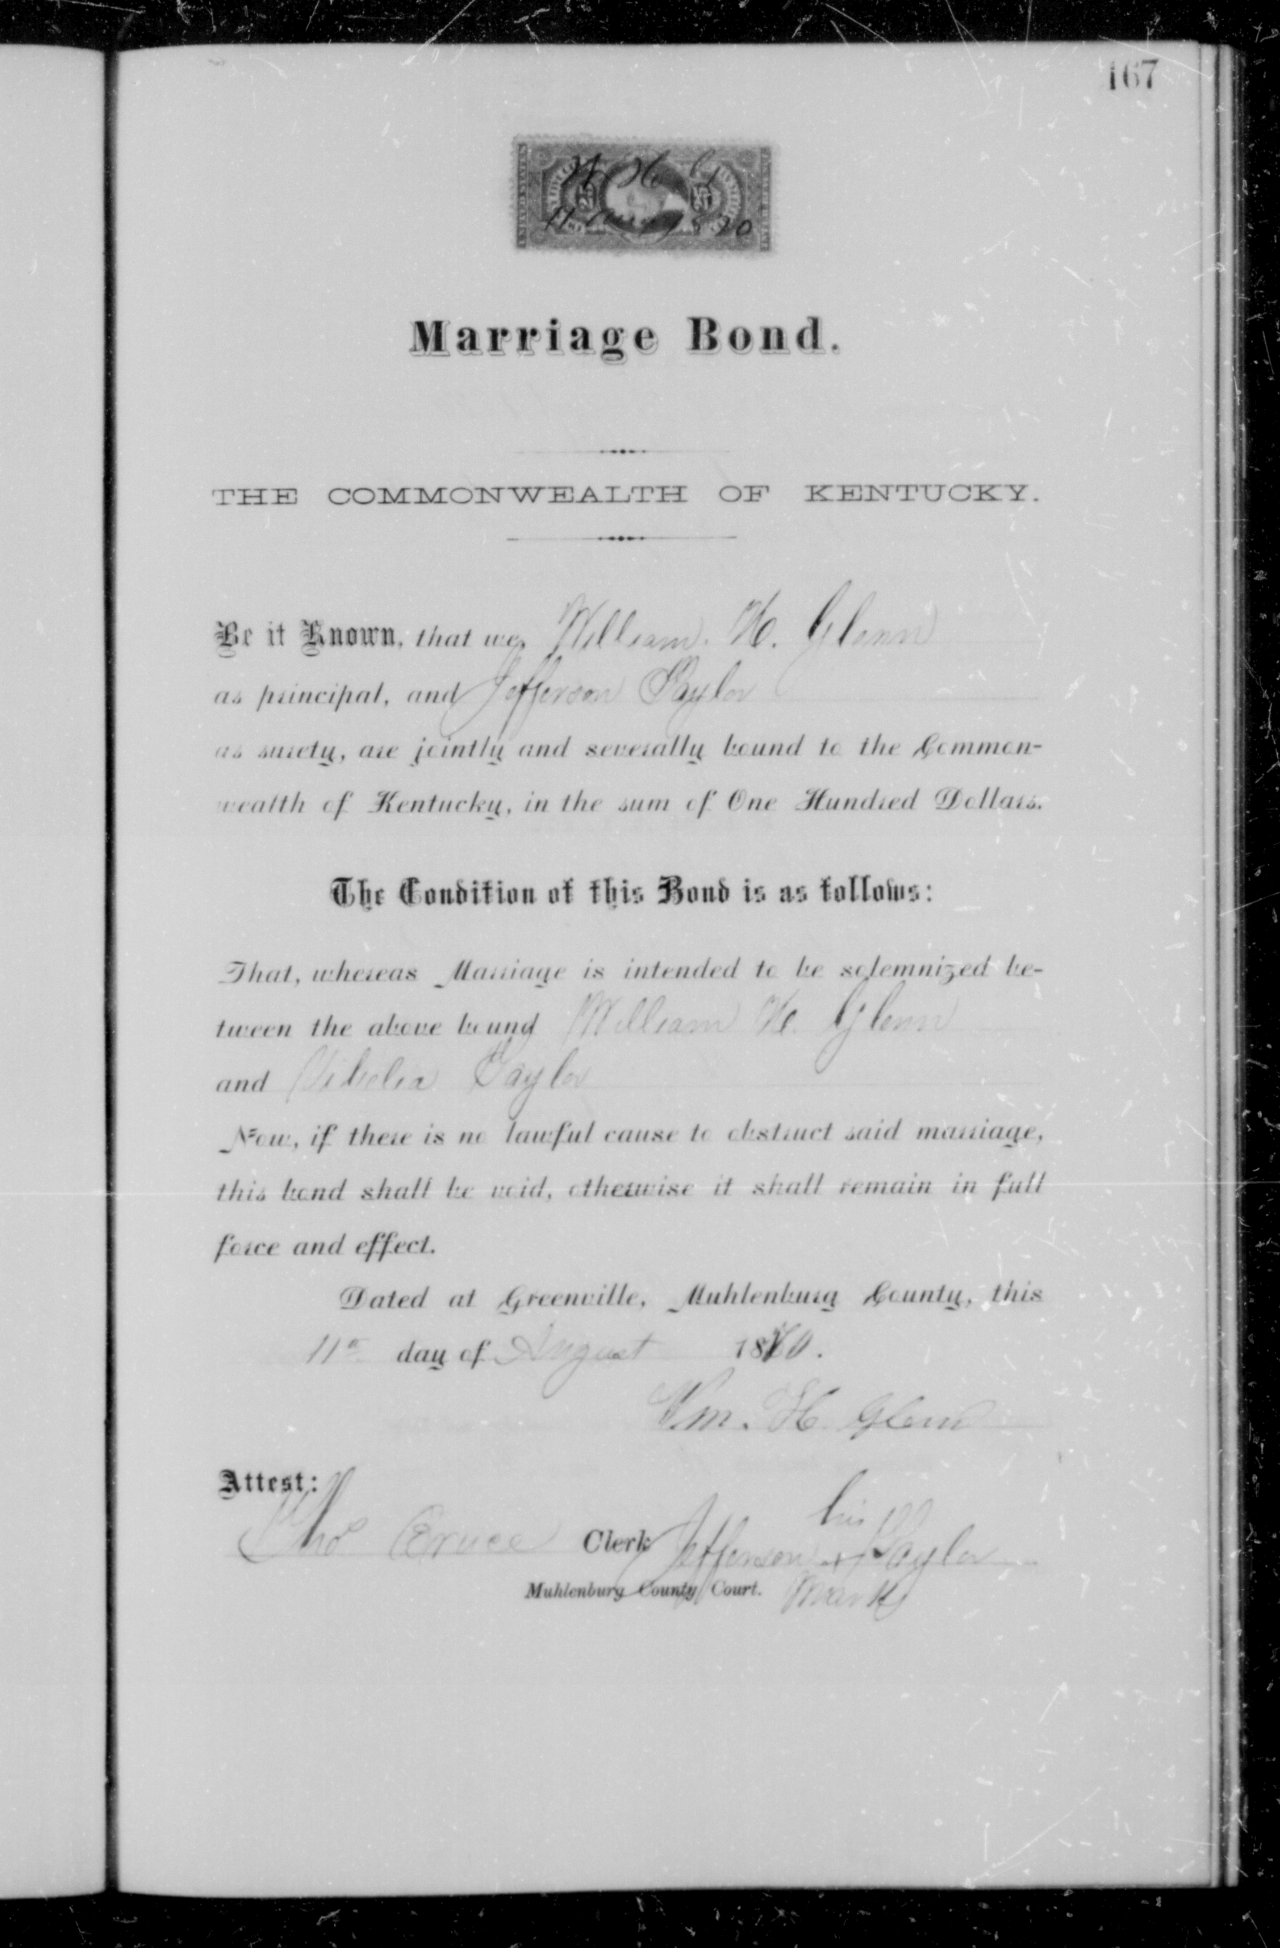 167
W. H. G
11 Aug 1870
25 25
Marriage Bond.
THE COMMONWEALTH OF KENTUCKY.
Be it Known, that we, William. H. Glenn
as principal, and Jefferson Taylor
as surety, are jointly and severally bound to the Common-
wealth of Kentucky, in the sum of One Hundred Dollars.
The Condition of this Bond is as follows:
That, whereas Marriage is intended to be solemnized be-
tween the above bound William H. Glenn
and Taylor
Now, if there is no lawful cause to obstruct said marriage,
this bond shall be void, otherwise it shall remain in full
force and effect.
Dated at Greenville, Muhlenburg County, this
11th day of August 1870.
Wm. H. Glenn
Attest:
Thos Bruce Clerk Jefferson his + mark Taylor
Muhlenburg County Court.